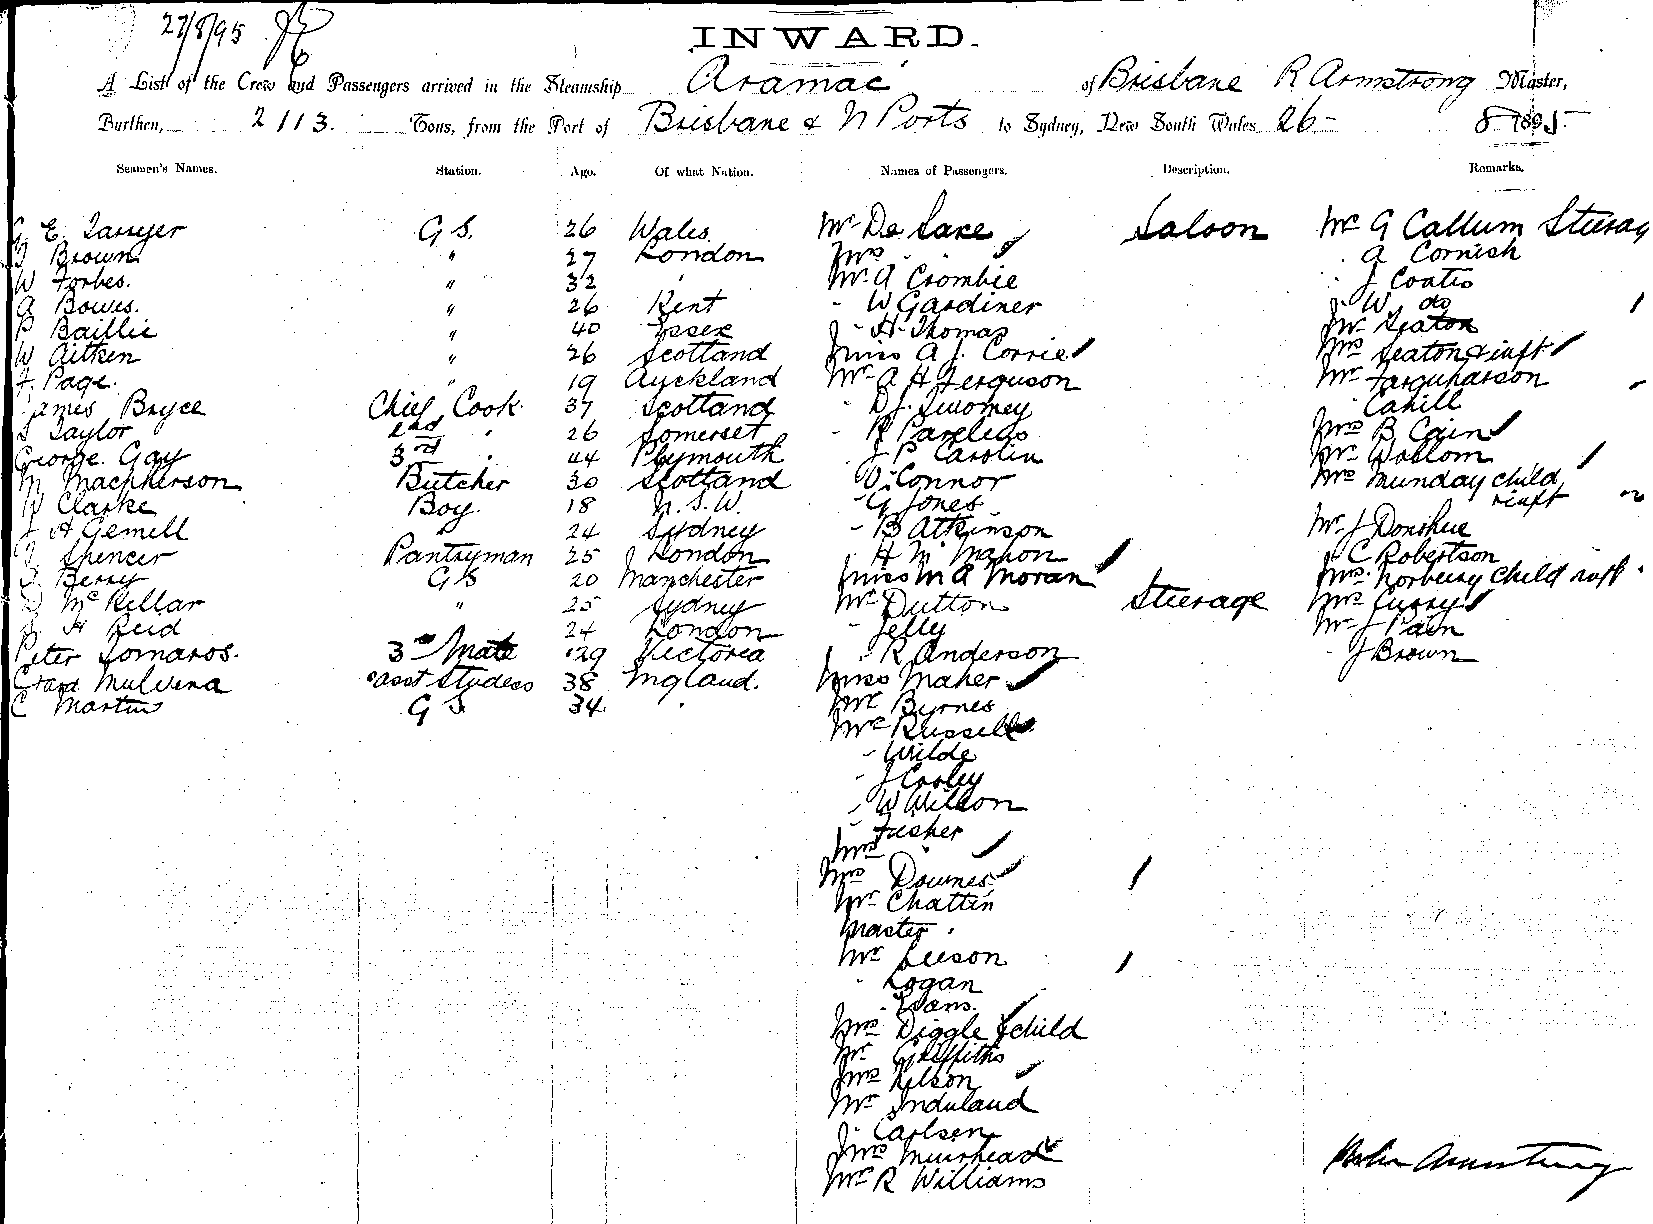 27/8/95
INWARD.
A List of the Crew and Passengers arrived in the Steamship Aramac of Brisbane R Armstrong Master,
Burthen, 2113. Tons, from the Port of Brisbane & N Ports to Sydney, New South Wales 26- 8 1895
Seamen's Names. Station. Age. Of what Nation. Names of Passengers. Description. Remarks.
E. G.S. 26 Wales Mr De Saxe Saloon Mr G Callum Steerag
Brown " 27 London Mrs " A Cornish
W Forbes. " 32 " Mr A Crombie J Coates
A Bowes. " 26 Kent " W Gardiner " W do
P Baillie " 40 Essex " H Thomas Mr Seaton
W Aitken " 26 Scotland Miss A J. Corrie Mrs Seaton & inft
F. Page. " 19 Auckland Mr A H Ferguson Mr Farquharson
James Bryce Chief Cook 37 Scotland " D J. Twomey " Cahill
S Taylor 2nd " 26 Somerset " R Mrs B Cain
George Gay 3rd " 44 Plymouth J P Carolin Mr
M Macpherson Butcher 30 Scotland " O'Connor Mrs Munday child
W Clarke Boy. 18 N.S.W. " G Jones & inft
J A Gemell 24 Sydney " B Atkinson Mr J Donohue
J Spencer Pantryman 25 London " H McMahon " C Robertson
Berry G S 20 Manchester Miss M A Moran Mrs Norbury child inft
McKellar " 25 Sydney Mr Dutton Steerage Mrs Curry
J H Reid 24 London " Jelly Mr J Pain
Peter Somaros. 3rd Mate 29 Victoria " R Anderson " J Brown
Mulvena asst Studess 38 England. Miss Maher
C Martin G S 34 " Mr Byrnes
Mrs Russell
" Wilde
" J Cooley
" W Wilson
" Fusher
Mrs "
Mrs Downes
Mr Chattin
Master "
Mr Leeson
" Logan
" Evans.
Mrs Diggle & child
Mr Griffiths
Mrs Nelson
Mr Induland
" Carlsen
Mrs Muirhead
Mr R Williams
Armstrong